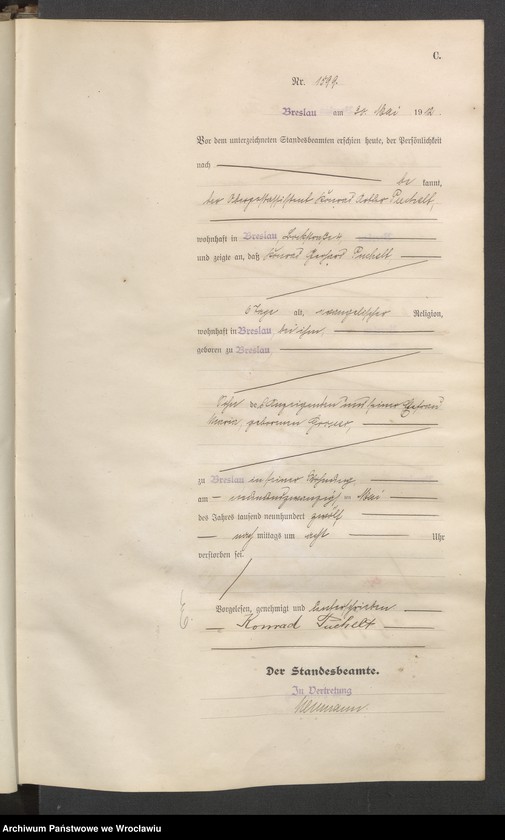 C.
Nr. 1599.
Breslau am 30. Mai 1912.
Vor dem unterzeichneten Standesbeamten erschien heute, der Persönlichkeit
nach
be kannt,
der Konrad Puchelt,
wohnhaft in Breslau,
und zeigte an, daß Konrad Gerhard Puchelt
6 Tage alt, evangelischer Religion,
wohnhaft in Breslau bei ihm,
geboren zu Breslau
Sohn des Anzeigenden und seiner Ehefrau
Maria, geborenen
zu Breslau in seiner Wohnung,
am undzwanzig ten Mai
des Jahres tausend neunhundert zwölf
nach mittags um acht Uhr
verstorben sei.
Vorgelesen, genehmigt und unterschrieben
Konrad Puchelt
Der Standesbeamte.
In Vertretung
Archiwum Państwowe we Wrocławiu